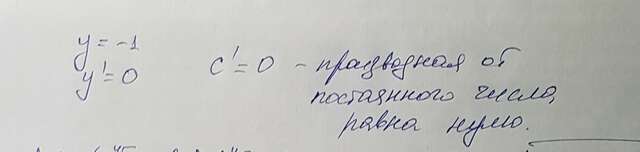 y = -1
y' = 0
c' = 0 - празводная от
постоянного числа,
равна нулю.